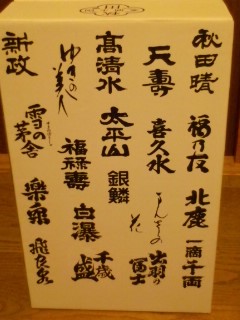 秋田晴
福乃友
北鹿
一滴千両
天壽
喜久水
まんさくの花
出羽の冨士
高清水
太平山
銀鱗
千歳盛
ゆきの美人
福禄壽
白瀑
新政
雪の茅舎
飛良泉